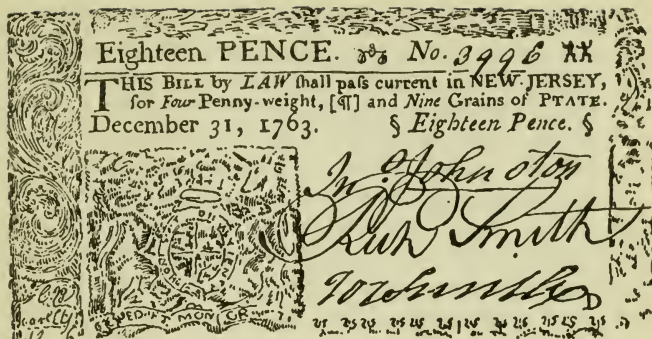 Eighteen PENCE. No. 3996
THIS BILL by LAW ſhall paſs current in NEW-JERSEY,
for Four Penny-weight, [¶] and Nine Grains of PTATE.
December 31, 1763. § Eighteen Pence. §
Jn. Johnston
Rich Smith